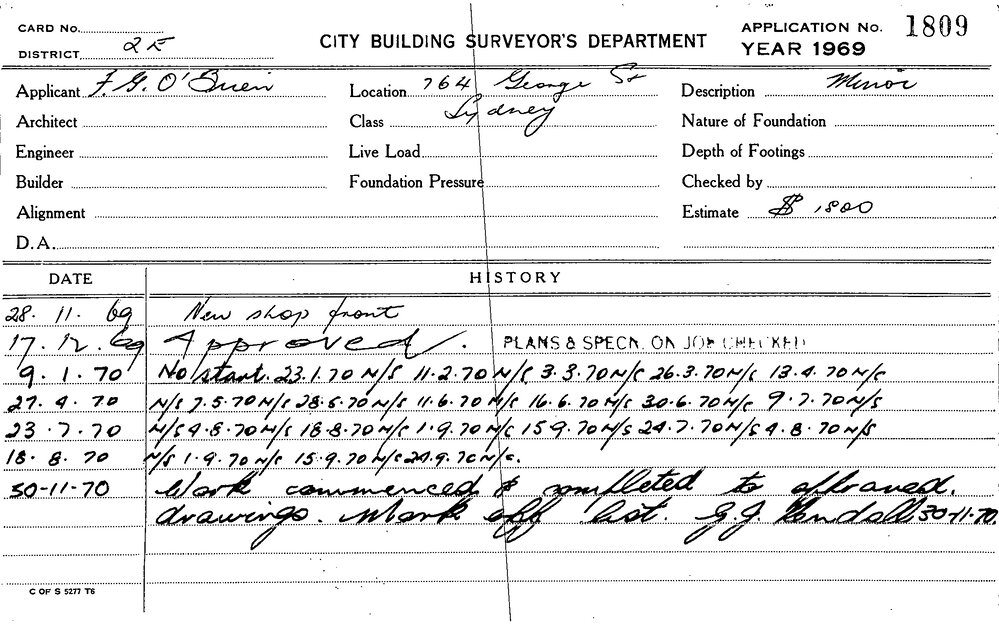 CARD No.
DISTRICT 2E
CITY BUILDING SURVEYOR'S DEPARTMENT
APPLICATION No. 1809
YEAR 1969
Applicant F.G. O'Brien
Location 764 George St
Sydney
Description Minor
Architect
Class
Nature of Foundation
Engineer
Live Load
Depth of Footings
Builder
Foundation Pressure
Checked by
Alignment
Estimate $ 1800
D.A.
DATE HISTORY
28. 11. 69 New shop front
17. 12. 69 Approved. PLANS & SPECN. ON JOB CHECKED
9. 1. 70 No start. 23.1.70 N/S 11.2.70 N/S 3.3.70 N/S 26.3.70 N/S 13.4.70 N/S
27. 4. 70 N/S 7.5.70 N/S 28.5.70 N/S 11.6.70 N/S 16.6.70 N/S 30.6.70 N/S 9.7.70 N/S
23. 7. 70 N/S 4.8.70 N/S 18.8.70 N/S 1.9.70 N/S 15.9.70 N/S 24.7.70 N/S 4.8.70 N/S
18. 8. 70 N/S 1.9.70 N/S 15.9.70 N/S 24.9.70 N/S.
30-11-70 Work commenced & completed to approved.
drawings. Mark off list. G.J. Kendall 30-11-70.
C OF S 5277 T6